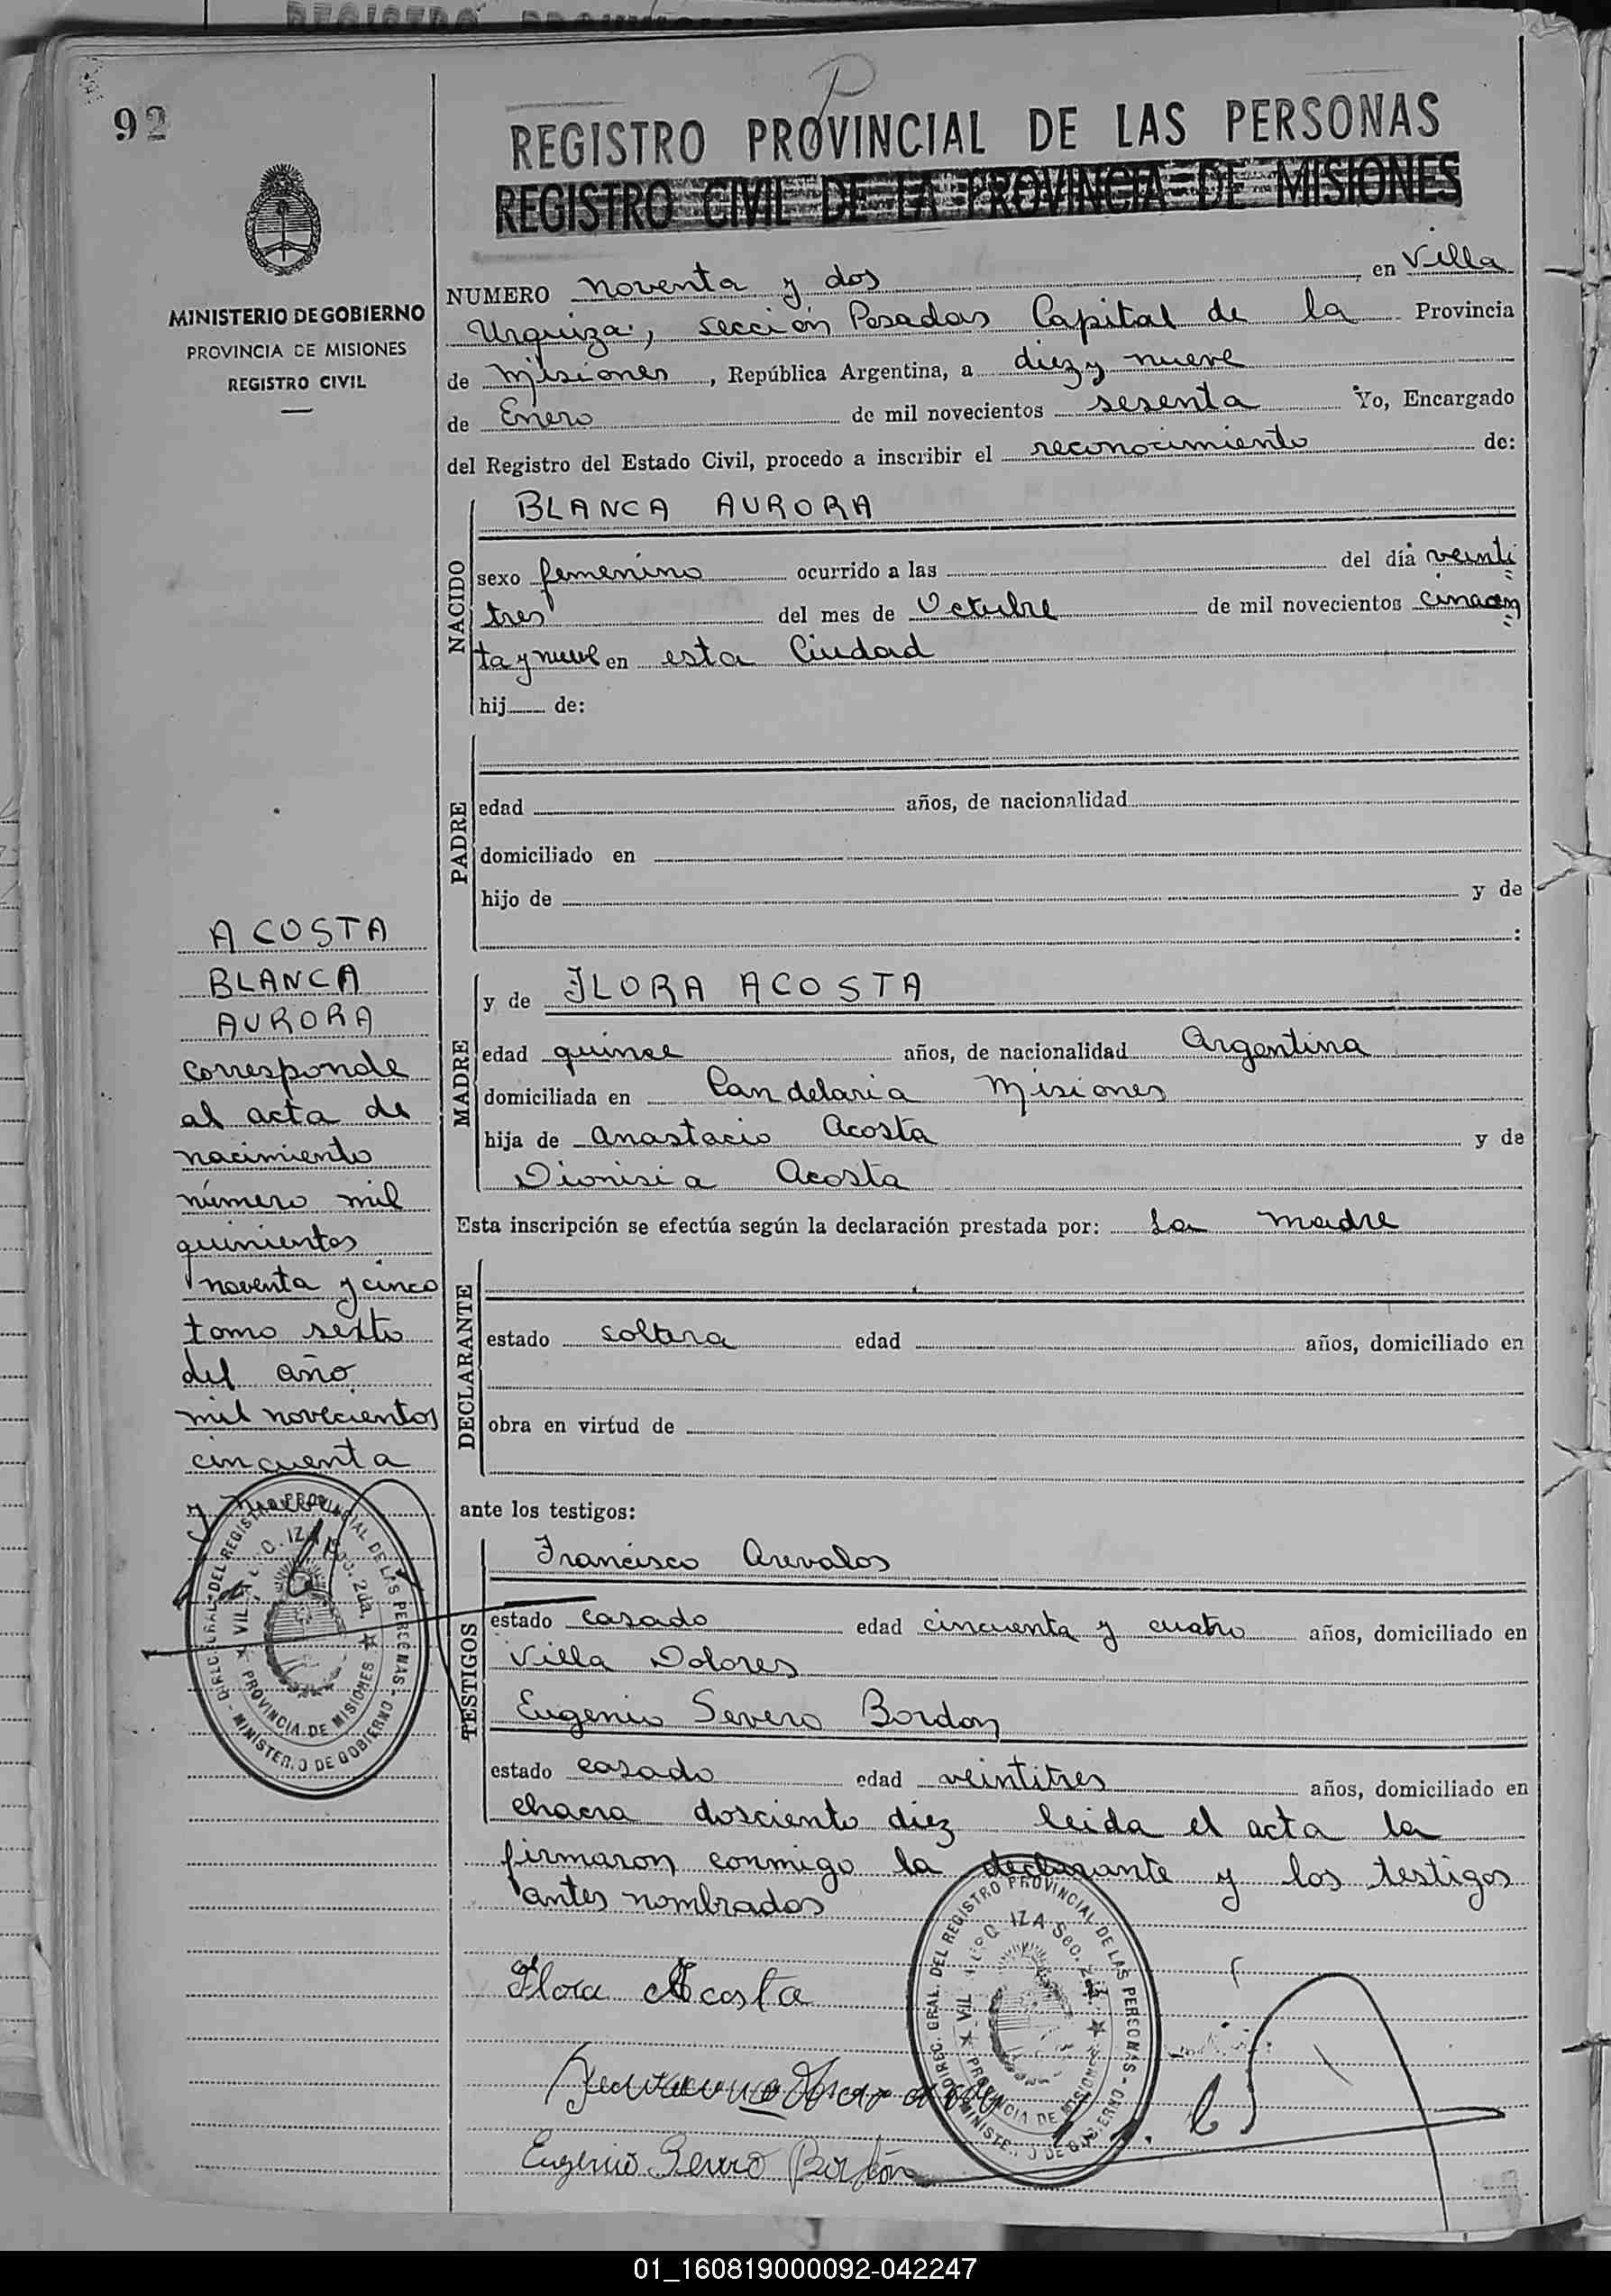 92
REGISTRO PROVINCIAL DE LAS PERSONAS
REGISTRO CIVIL DE LA PROVINCIA DE MISIONES
MINISTERIO DE GOBIERNO
PROVINCIA DE MISIONES
REGISTRO CIVIL
NUMERO noventa y dos en Villa
Urquiza, sección Posadas Capital de la Provincia
de Misiones, República Argentina, a diez y nueve
de Enero de mil novecientos sesenta Yo, Encargado
del Registro del Estado Civil, procedo a inscribir el reconocimiento de:
NACIDO
BLANCA AURORA
sexo femenino ocurrido a las del día veinti
tres del mes de Octubre de mil novecientos cincuen
ta y nueve en esta Ciudad
hij de:
PADRE
edad años, de nacionalidad
domiciliado en
hijo de y de
:
MADRE
y de FLORA ACOSTA
edad quince años, de nacionalidad Argentina
domiciliada en Candelaria Misiones
hija de Anastacio Acosta y de
Dionisia Acosta
Esta inscripción se efectúa según la declaración prestada por: La madre
DECLARANTE
estado soltera edad años, domiciliado en
obra en virtud de
ante los testigos:
TESTIGOS
Francisco Arevalos
estado casado edad cincuenta y cuatro años, domiciliado en
Villa Dolores
Eugenio Severo Bordon
estado casado edad veintitres años, domiciliado en
chacra dosciento diez leida el acta la
firmaron conmigo la declarante y los testigos
antes nombrados
Flora Acosta
Eugenio Severo Bordón
ACOSTA
BLANCA
AURORA
corresponde
al acta de
nacimiento
número mil
quinientos
noventa y cinco
tomo sexto
del año
mil novecientos
cincuenta
y nueve
DIREC. GRAL. DEL REGISTRO PROVINCIAL DE LAS PERSONAS - MINISTERIO DE GOBIERNO
VILLA URQUIZA Sec. 2da. PROVINCIA DE MISIONES
DIREC. GRAL. DEL REGISTRO PROVINCIAL DE LAS PERSONAS - MINISTERIO DE GOBIERNO
VILLA URQUIZA Sec. 2da. PROVINCIA DE MISIONES
01_160819000092-042247